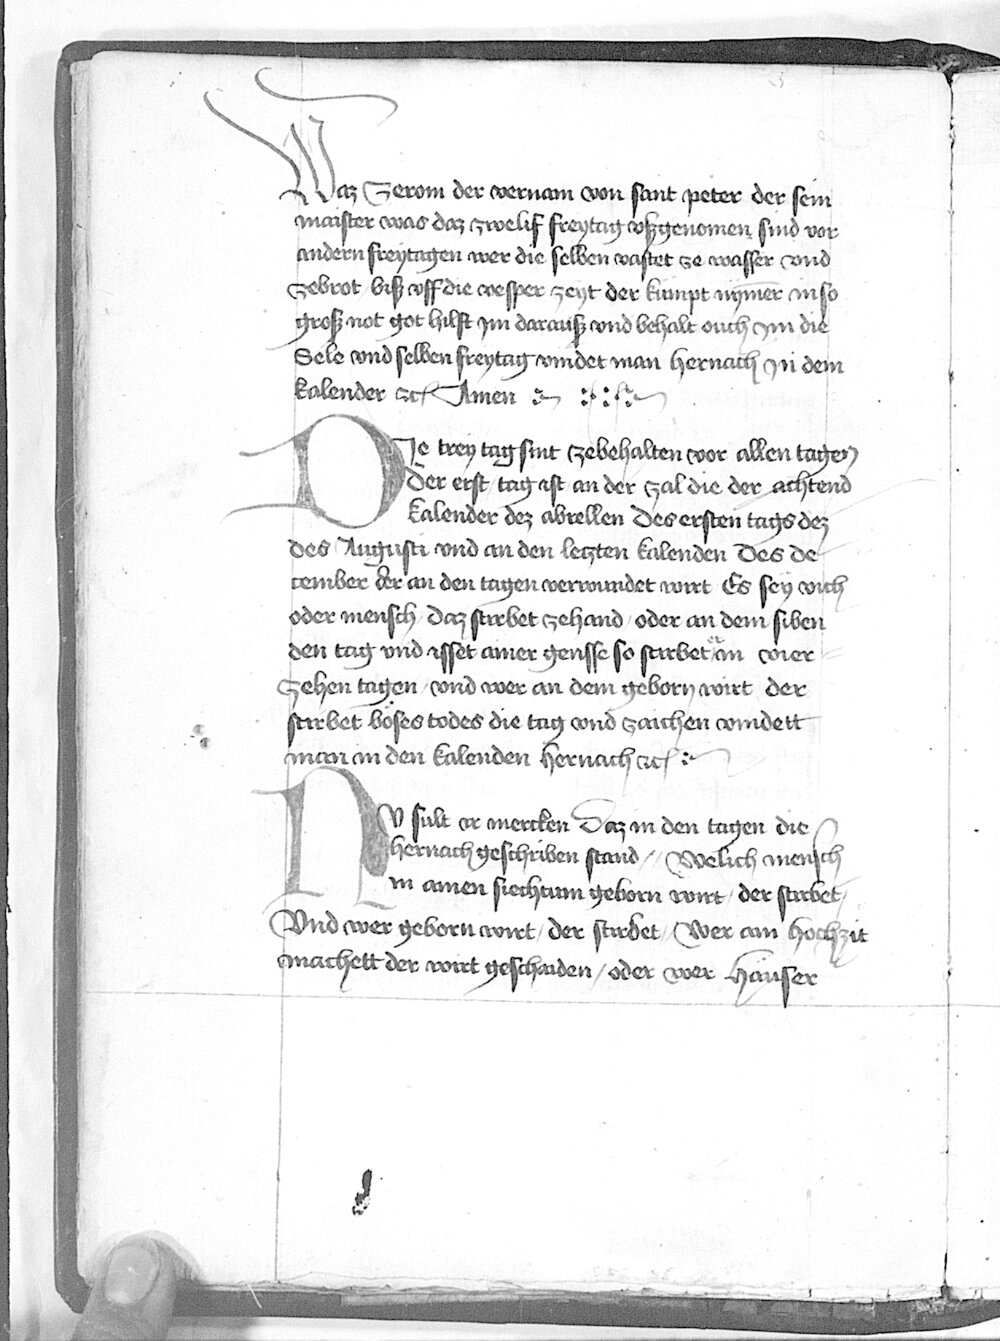 Waz Serom der vernam von sant peter der sein
maister was daz zwelif freytag vßgenomen sind vor
andern freytagen wer die selben vastet ze wasser vnd
ze brot biß vff die vesper zeyt der kumpt nymer in so
groß not got hilft im darauß vnd behalt ouch im die
Sele vnd selben freytag vindet man hernach in dem
kalender zc Amen
DIe trey tag sint ze behalten vor allen tagen
Der erst tag ist an der zal die der achtend
kalender dez abrellen Des ersten tags dez
des Augusti vnd an den letzten kalenden Des de
cember der an den tagen verwundet wirt Es sey vich
oder mensch Daz stirbet ze hand oder an dem siben
den tag vnd isset ainer gensse so stirbet er in vier
zehen tagen vnd wer an dem geborn wirt der
stirbet böses todes die tag vnd zaichen vindett
man in den kalenden hernach zc
NV sult ir mercken Daz in den tagen die
hernach geschriben stand Welich mensch
in ainen siechtum geborn wirt der stirbet
Vnd wer geborn wirt der stirbet Wer ain hochzit
machett der wirt geschaiden oder wer häuser